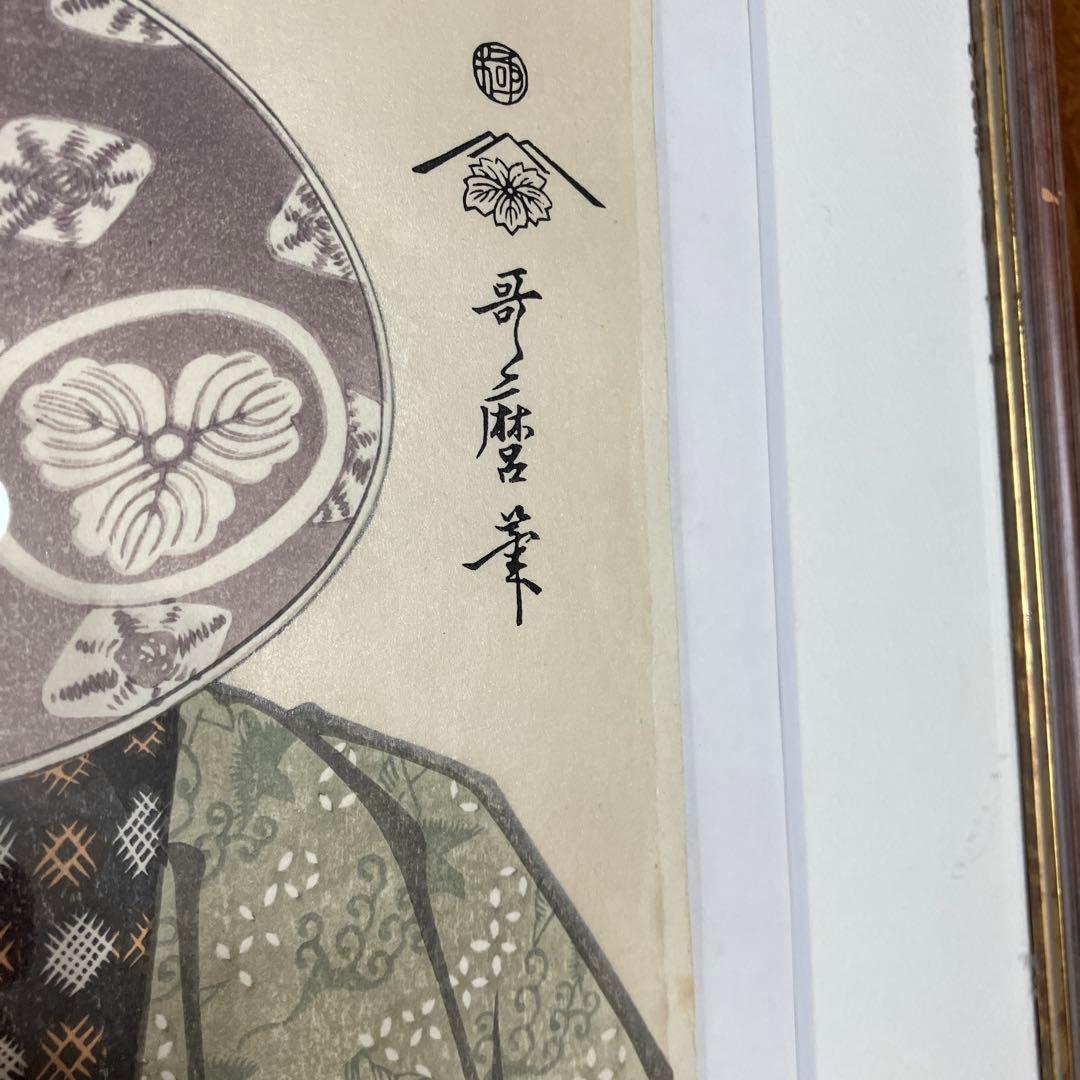 極
哥麿筆